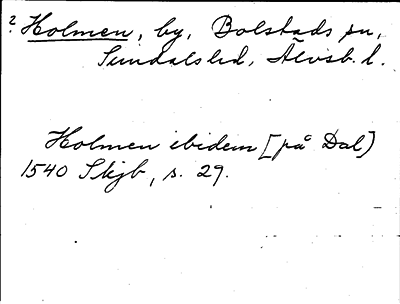 ? Holmen, by, Bolstads sn,
Sundals hd, Älvsb. l.
Holmen ibidem [på Dal]
1540 Skjb, s. 29.